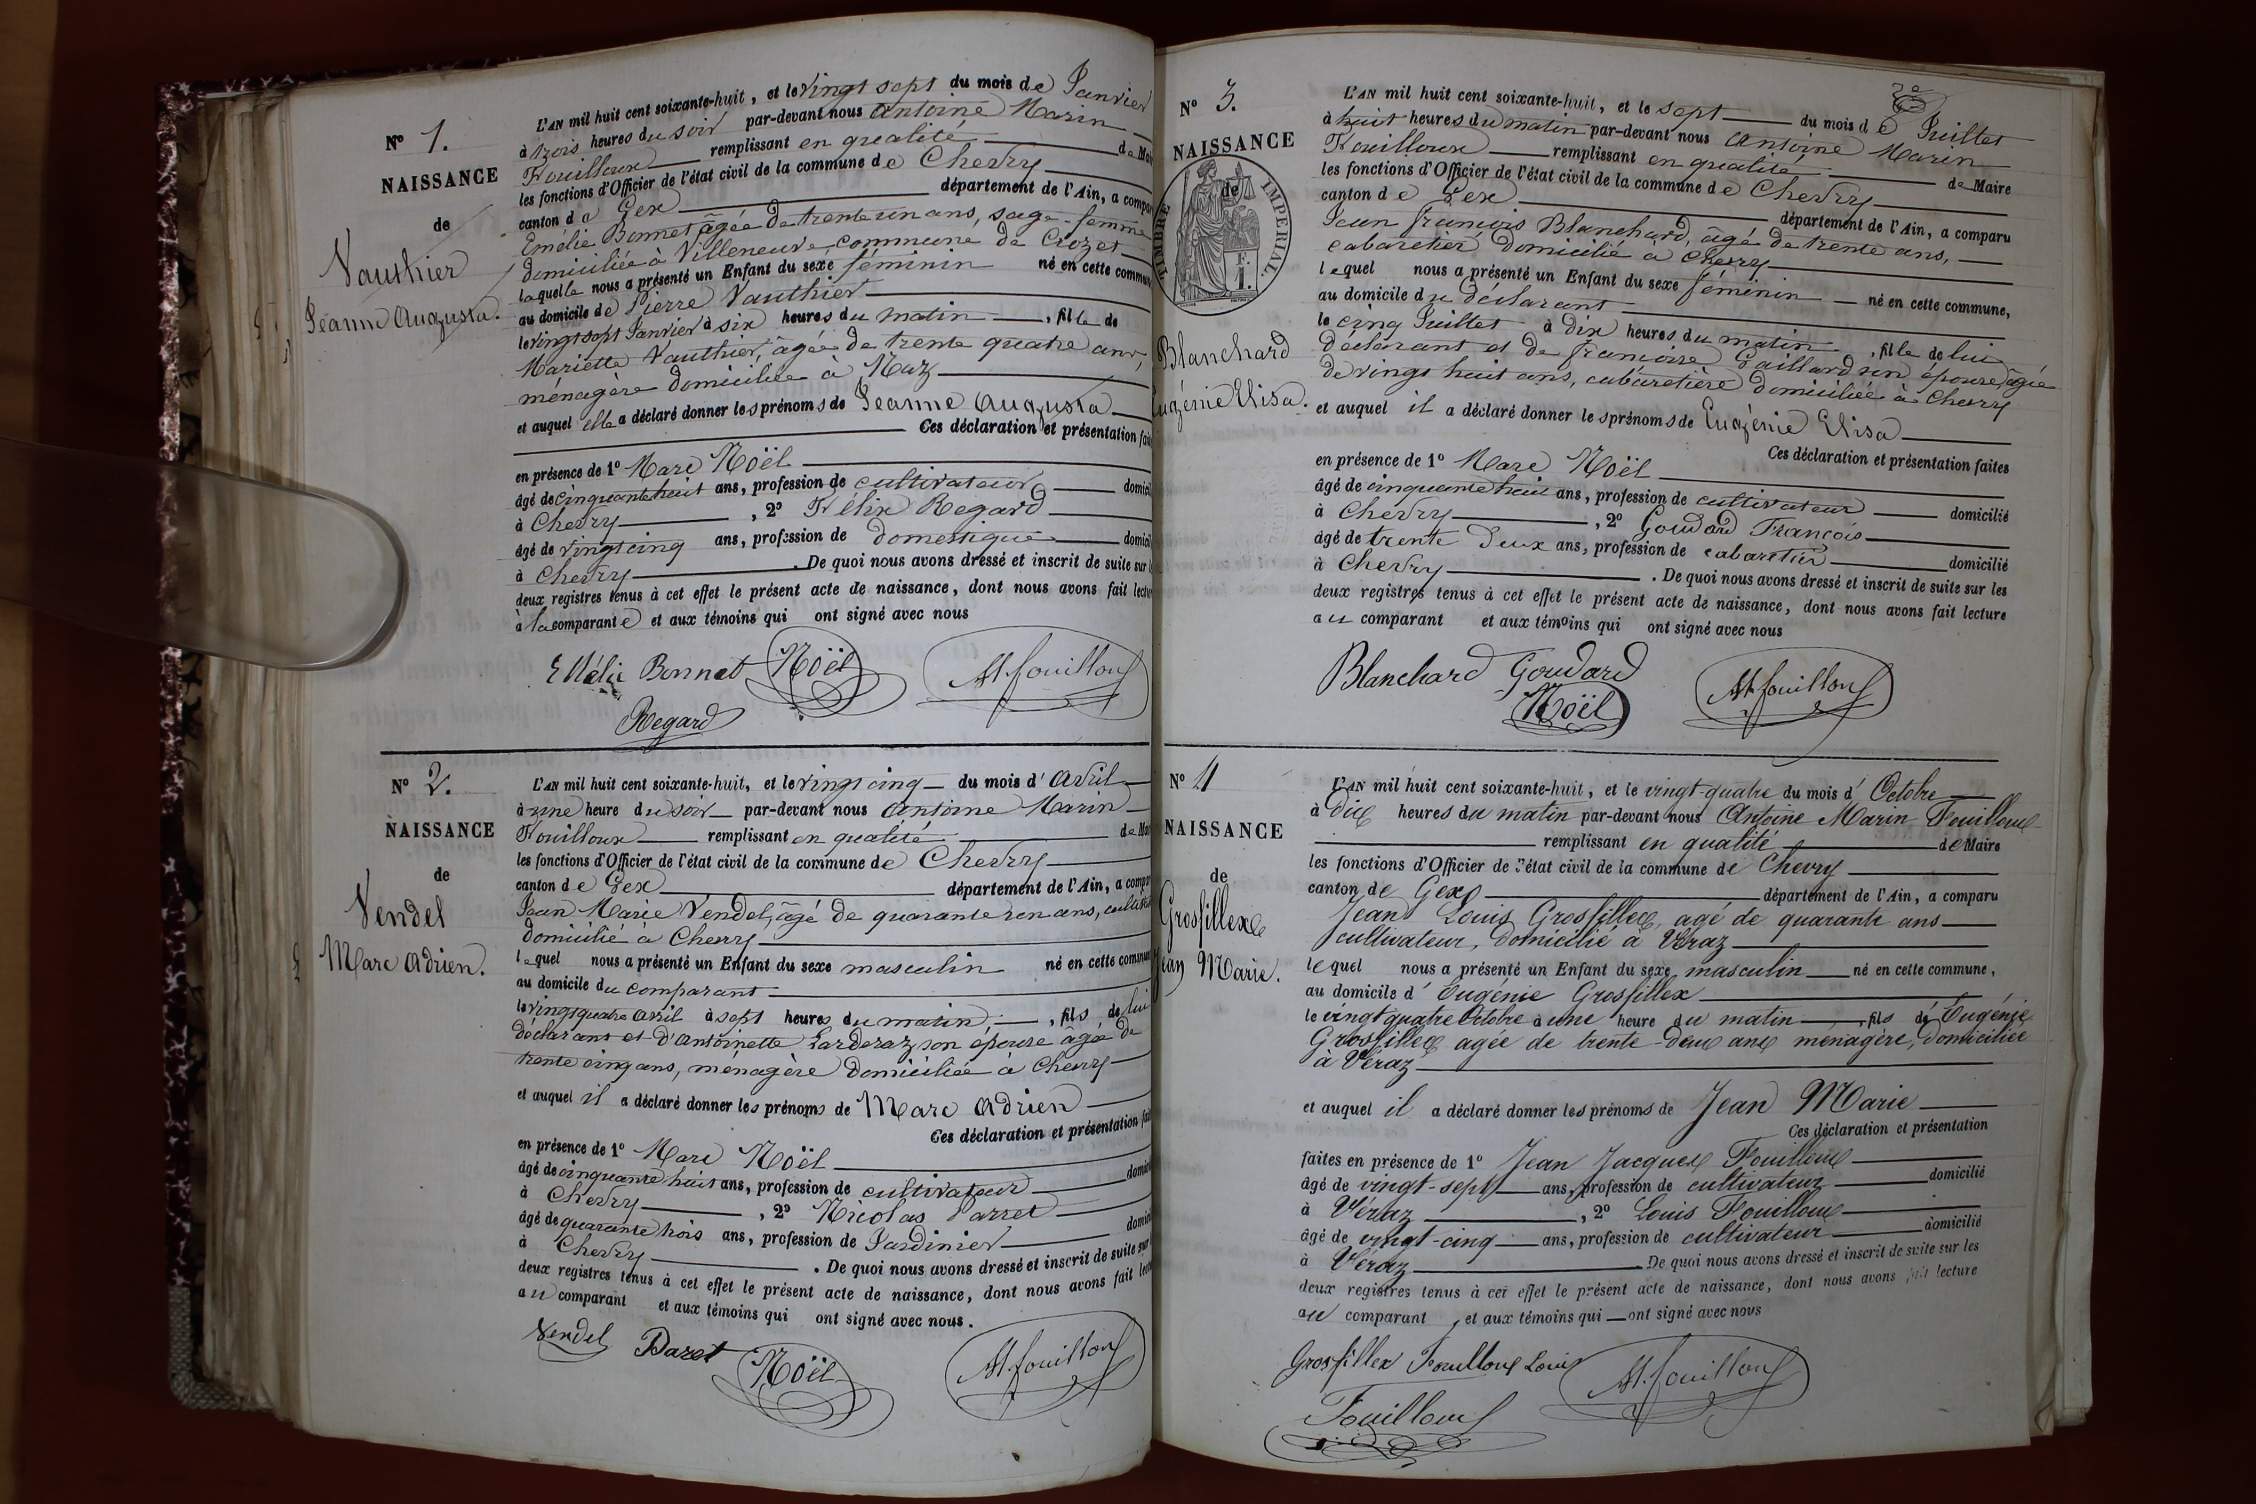 N° 1.
NAISSANCE
de
Vauthier
Jeanne Augusta.
L'AN mil huit cent soixante-huit, et le vingt sept du mois de Janvier
à trois heures du soir par-devant nous Antoine Marin
Fouilloux remplissant en qualité de Mai
les fonctions d'Officier de l'état civil de la commune de Chevry
canton de Gex département de l'Ain, a compar
Emélie Bonnet âgée de trente un ans, sage-femme
domiciliée à Villeneuve commune de Crozet
laquelle nous a présenté un Enfant du sexe féminin né en cette commun
au domicile de Pierre Vauthier
le vingt sept Janvier à six heures du matin, fille de
Mariette Vauthier, âgée de trente quatre ans,
ménagère domiciliée à Naz
et auquel elle a déclaré donner les prénoms de Jeanne Augusta
Ces déclaration et présentation fai
en présence de 1° Marc Noël
âgé de cinquante huit ans, profession de cultivateur domici
à Chevry, 2° Félix Regard
âgé de vingt cinq ans, profession de domestique domici
à Chevry. De quoi nous avons dressé et inscrit de suite sur l
deux registres tenus à cet effet le présent acte de naissance, dont nous avons fait lectu
à la comparante et aux témoins qui ont signé avec nous
Emélie Bonnet Noël At. fouilloux
Regard
N° 2.
NAISSANCE
de
Vendel
Marc Adrien.
L'AN mil huit cent soixante-huit, et le vingt cinq du mois d'Avril
à une heure du soir par-devant nous Antoine Marin
Fouilloux remplissant en qualité de Mai
les fonctions d'Officier de l'état civil de la commune de Chevry
canton de Gex département de l'Ain, a compar
Jean Marie Vendel, âgé de quarante un ans,
domicilié à Chevry
lequel nous a présenté un Enfant du sexe masculin né en cette commun
au domicile du comparant
le vingt quatre avril à sept heures du matin, fils de lui
déclarant et d'Antoinette Larderaz son épouse âgée de
trente cinq ans, ménagère domiciliée à Chevry
et auquel il a déclaré donner les prénoms de Marc Adrien
Ces déclaration et présentation fai
en présence de 1° Marc Noël
âgé de cinquante huit ans, profession de cultivateur domici
à Chevry, 2° Nicolas Parret
âgé de quarante trois ans, profession de Jardinier domici
à Chevry. De quoi nous avons dressé et inscrit de suite sur
deux registres tenus à cet effet le présent acte de naissance, dont nous avons fait lect
au comparant et aux témoins qui ont signé avec nous.
Vendel Paret Noël At. fouilloux
N° 3.
NAISSANCE
de
TIMBRE IMPERIAL
F.
1.
Blanchard
Eugénie Elisa.
L'AN mil huit cent soixante-huit, et le sept du mois de Juillet
à huit heures du matin par-devant nous Antoine Marin
Fouilloux remplissant en qualité de Maire
les fonctions d'Officier de l'état civil de la commune de Chevry
canton de Gex département de l'Ain, a comparu
Jean François Blanchard, âgé de trente ans,
cabaretier domicilié à Chevry
lequel nous a présenté un Enfant du sexe féminin né en cette commune,
au domicile du déclarant
le cinq Juillet à dix heures du matin, fille de lui
déclarant et de françoise Gaillard son épouse, âgée
de vingt huit ans, cabaretière domiciliée à Chevry
et auquel il a déclaré donner les prénoms de Eugénie Elisa
Ces déclaration et présentation faites
en présence de 1° Marc Noël
âgé de cinquante huit ans, profession de cultivateur domicilié
à Chevry, 2° Goudard François
âgé de trente deux ans, profession de cabaretier domicilié
à Chevry. De quoi nous avons dressé et inscrit de suite sur les
deux registres tenus à cet effet le présent acte de naissance, dont nous avons fait lecture
au comparant et aux témoins qui ont signé avec nous
Blanchard Goudard
Noël At. fouilloux
N° 4
NAISSANCE
de
Grosfillex
Jean Marie.
L'AN mil huit cent soixante-huit, et le vingt-quatre du mois d'Octobre
à dix heures du matin par-devant nous Antoine Marin Fouilloux
remplissant en qualité de Maire
les fonctions d'Officier de l'état civil de la commune de Chevry
canton de Gex département de l'Ain, a comparu
Jean Louis Grosfillex, agé de quarante ans
cultivateur, domicilié à Véraz
lequel nous a présenté un Enfant du sexe masculin né en cette commune,
au domicile d'Eugénie Grosfillex
le vingt quatre Octobre à une heure du matin, fils d'Eugénie
Grosfillex agée de trente-deux ans ménagère, domiciliée
à Véraz
et auquel il a déclaré donner les prénoms de Jean Marie
Ces déclaration et présentation
faites en présence de 1° Jean Jacques Fouilloux
âgé de vingt-sept ans, profession de cultivateur domicilié
à Véraz, 2° Louis Fouilloux
âgé de vingt-cinq ans, profession de cultivateur domicilié
à Véraz. De quoi nous avons dressé et inscrit de suite sur les
deux registres tenus à cet effet le présent acte de naissance, dont nous avons fait lecture
au comparant, et aux témoins qui ont signé avec nous
Grosfillex Fouilloux Louis At. fouilloux
Fouilloux